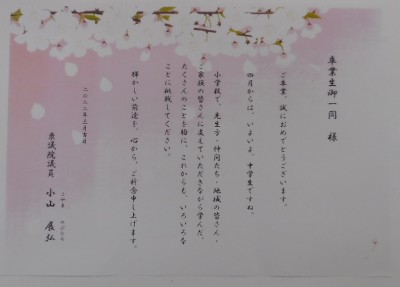 卒業生御一同　様
ご卒業、誠におめでとうございます。
四月からは、いよいよ、中学生ですね。
小学校で、先生方・仲間たち・地域の皆さん・
ご家族の皆さんに支えていただきながら学んだ、
たくさんのことを胸に、これからも、いろいろな
ことに挑戦してください。
輝かしい前途を、心から、ご祈念申し上げます。
二〇二二年三月吉日
衆議院議員　小山　展弘
こやま　のぶひろ